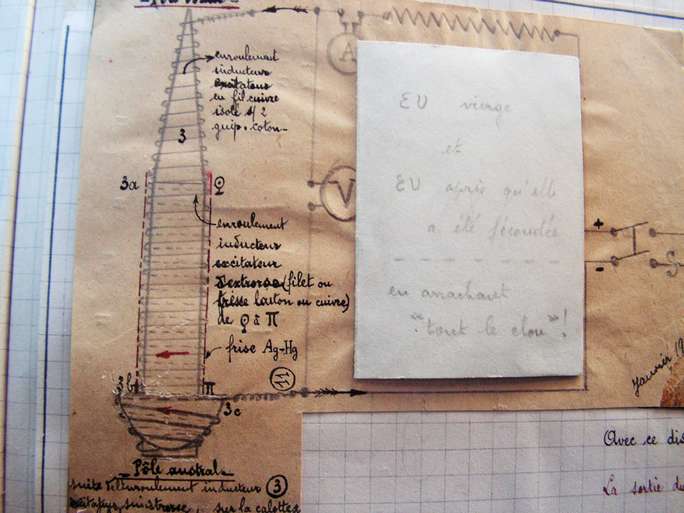 enroulement
inducteur
excitateur
en fil cuivre
isolé s/ 2
guip. coton
3
A
3a
V
enroulement
inducteur
excitateur
Dextrorse (filet ou
frise laiton ou cuivre)
de Ϙ à π
frise Ag-Hg
11
π
3c
Pôle austral
suite de l'enroulement inducteur 3
sur la calotte
EV vierge
et
EV après qu'elle
a été fécondée
en arrachant
"tout le clou"!
+
-
S
Janvier 19
Avec ce dis
La sortie du